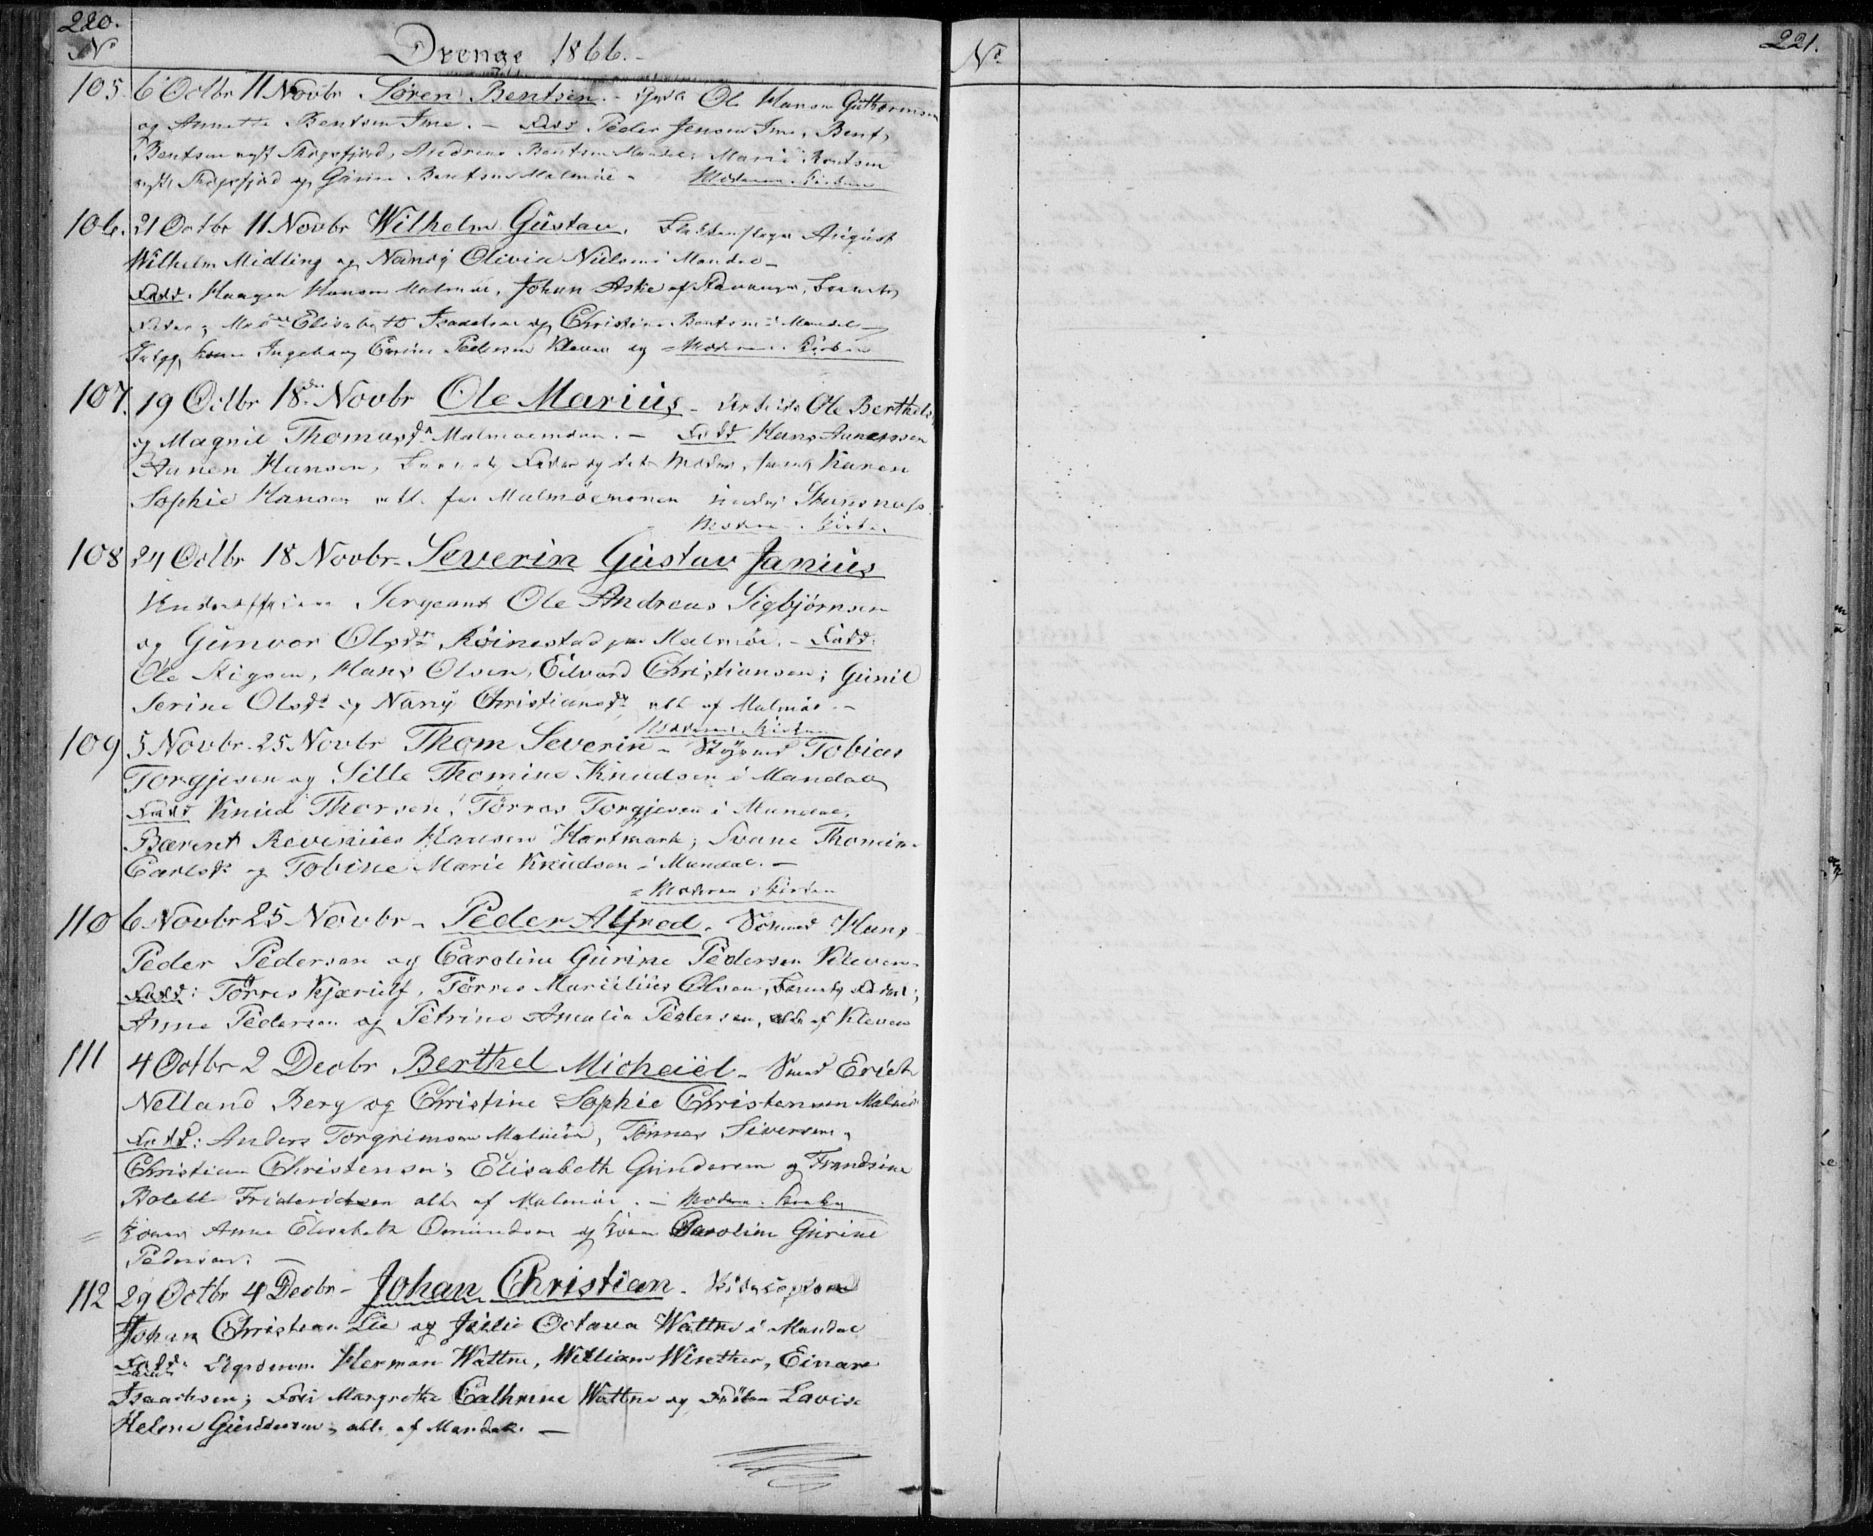 220.
No
Drenge 1866.-
No
221.
105. 6 Octbr 11 Novbr Søren Bentsen. - Ole Hansen Guthormsen
og Annette Bentsen Ime. - Fadd Peder Jensen Ime, Bent
Bentsen Skogsfjord, Andreas Bentsen Mandal, Marie Bentsen
Skogsfjord og Gurine Bentsen Malmöe - Moderen i Kirken
106. 21 Octbr 11 Novbr Wilhelm Gustav. August
Wilhelm Midling og Nansy Olivia Nielsen i Mandal -
Fadd. Haagen Hansen Malmöe, Johan Aske af Stavanger, Barnets
Fader; Mad. Elisabeth Isaachsen og Christine Bentsen i Mandal
Ingeborg Eevine Pedersen Kleven og = Moderen i Kirken
107. 19 Octbr 18de Novbr Ole Marius - Arbeids Ole Berthels
og Magnil Thomasdr Malmoemoen. - Fadd Hans Aanensen
Aanen Hansen, Barnets Fader og dets Moder, samt Karen
Sophie Hansen alle fra Malmöemoen
Moderen i Kirken
108 24 Octbr 18 Novbr - Severin Gustav Janius
Underofficier Sergeant Ole Andreas Sigbjørnsen
og Gunvor Olsdr Röinestad paa Malmöe. - Fadd:
Ole Stigsen, Hans Olsen, Edvard Christiansen; Gunil
Serine Olsdr og Nany Christiansdr, alle af Malmöe. -
Moderen i Kirken
109 5 Novbr. 25 Novbr Thom Severin - Styrmd Tobias
Torgjesen og Sille Thomine Knudsen i Mandal
Fadd Knud Thorsen, Törres Torgjesen i Mandal,
Bærent Revenius Hansen Hartmark; Svane Thomine
Carlsdr og Tobine Marie Knudsen i Mandal. -
= Moderen i Kirken
110 6 Novbr 25 Novbr - Peder Alfred. Sömand Hans
Peder Pedersen og Caroline Gurine Pedersen Kleven.
Fadd: Törres Kjærulf, Törres Marcilius Olsen, Barnets Fader;
Anne Pedersen og Petrine Amalia Pedersen, alle af Kleven
111 4 Octbr 2 Decbr Berthel Michael - Smed Erich
Netland Berg og Christine Sophie Christensen Malmö
Fadd: Anders Torgrimsen Malmöe, Tönnes Siversen,
Christian Christensen; Elisabeth Gundersen og Frandsine
Bolett Friderichsen alle af Malmöe. - Moderen i Kirken
= Konen Anne Elisabeth Osmundsen og Konen Caroline Gurine
Pedersen. -
112 29 Octbr 4 Decbr - Johan Christian.
Johan Christian Lie og Julie Octava Wattne i Mandal
Fadd: Herman Wattne, William Winther, Einar
Isaachsen; Margrethe Cathrine Wattne og Fröken Lovise
Helene Gundersen, alle af Mandal. -